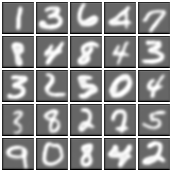 1 3 6 4 7
8 4 8 4 3
3 2 5 0 4
3 8 2 2 5
9 0 8 4 2